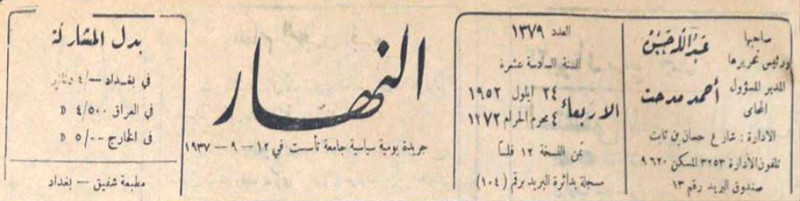 صاحبها
ورئيس تحريرها
عبدالله حسن
المدير المسؤول
المحامي
أحمد مدحت
الادارة : شارع حسان بن ثابت
تلفون الأدارة ٣٢٥٣ المسكن ٩٦٢٠
صندوق البريد رقم ١٣
العدد ١٣٧٩
السنة السادسة عشرة
الاربعاء
٢٤ ايلول ١٩٥٢
٤ محرم الحرام ١٢٧٢
ثمن النسخة ١٢ فلساً
مسجلة بدائرة البريد برقم (١٠٤)
النهار
جريدة يومية سياسية جامعة تأسست في ١٢ – ٩ – ١٩٣٧
بدل المشاركة
في بغداد –/٤ دنانير
في العراق ٤/٥٠٠ D
في الخارج ٥/٠٠ D
مطبعة شفيق – بغداد